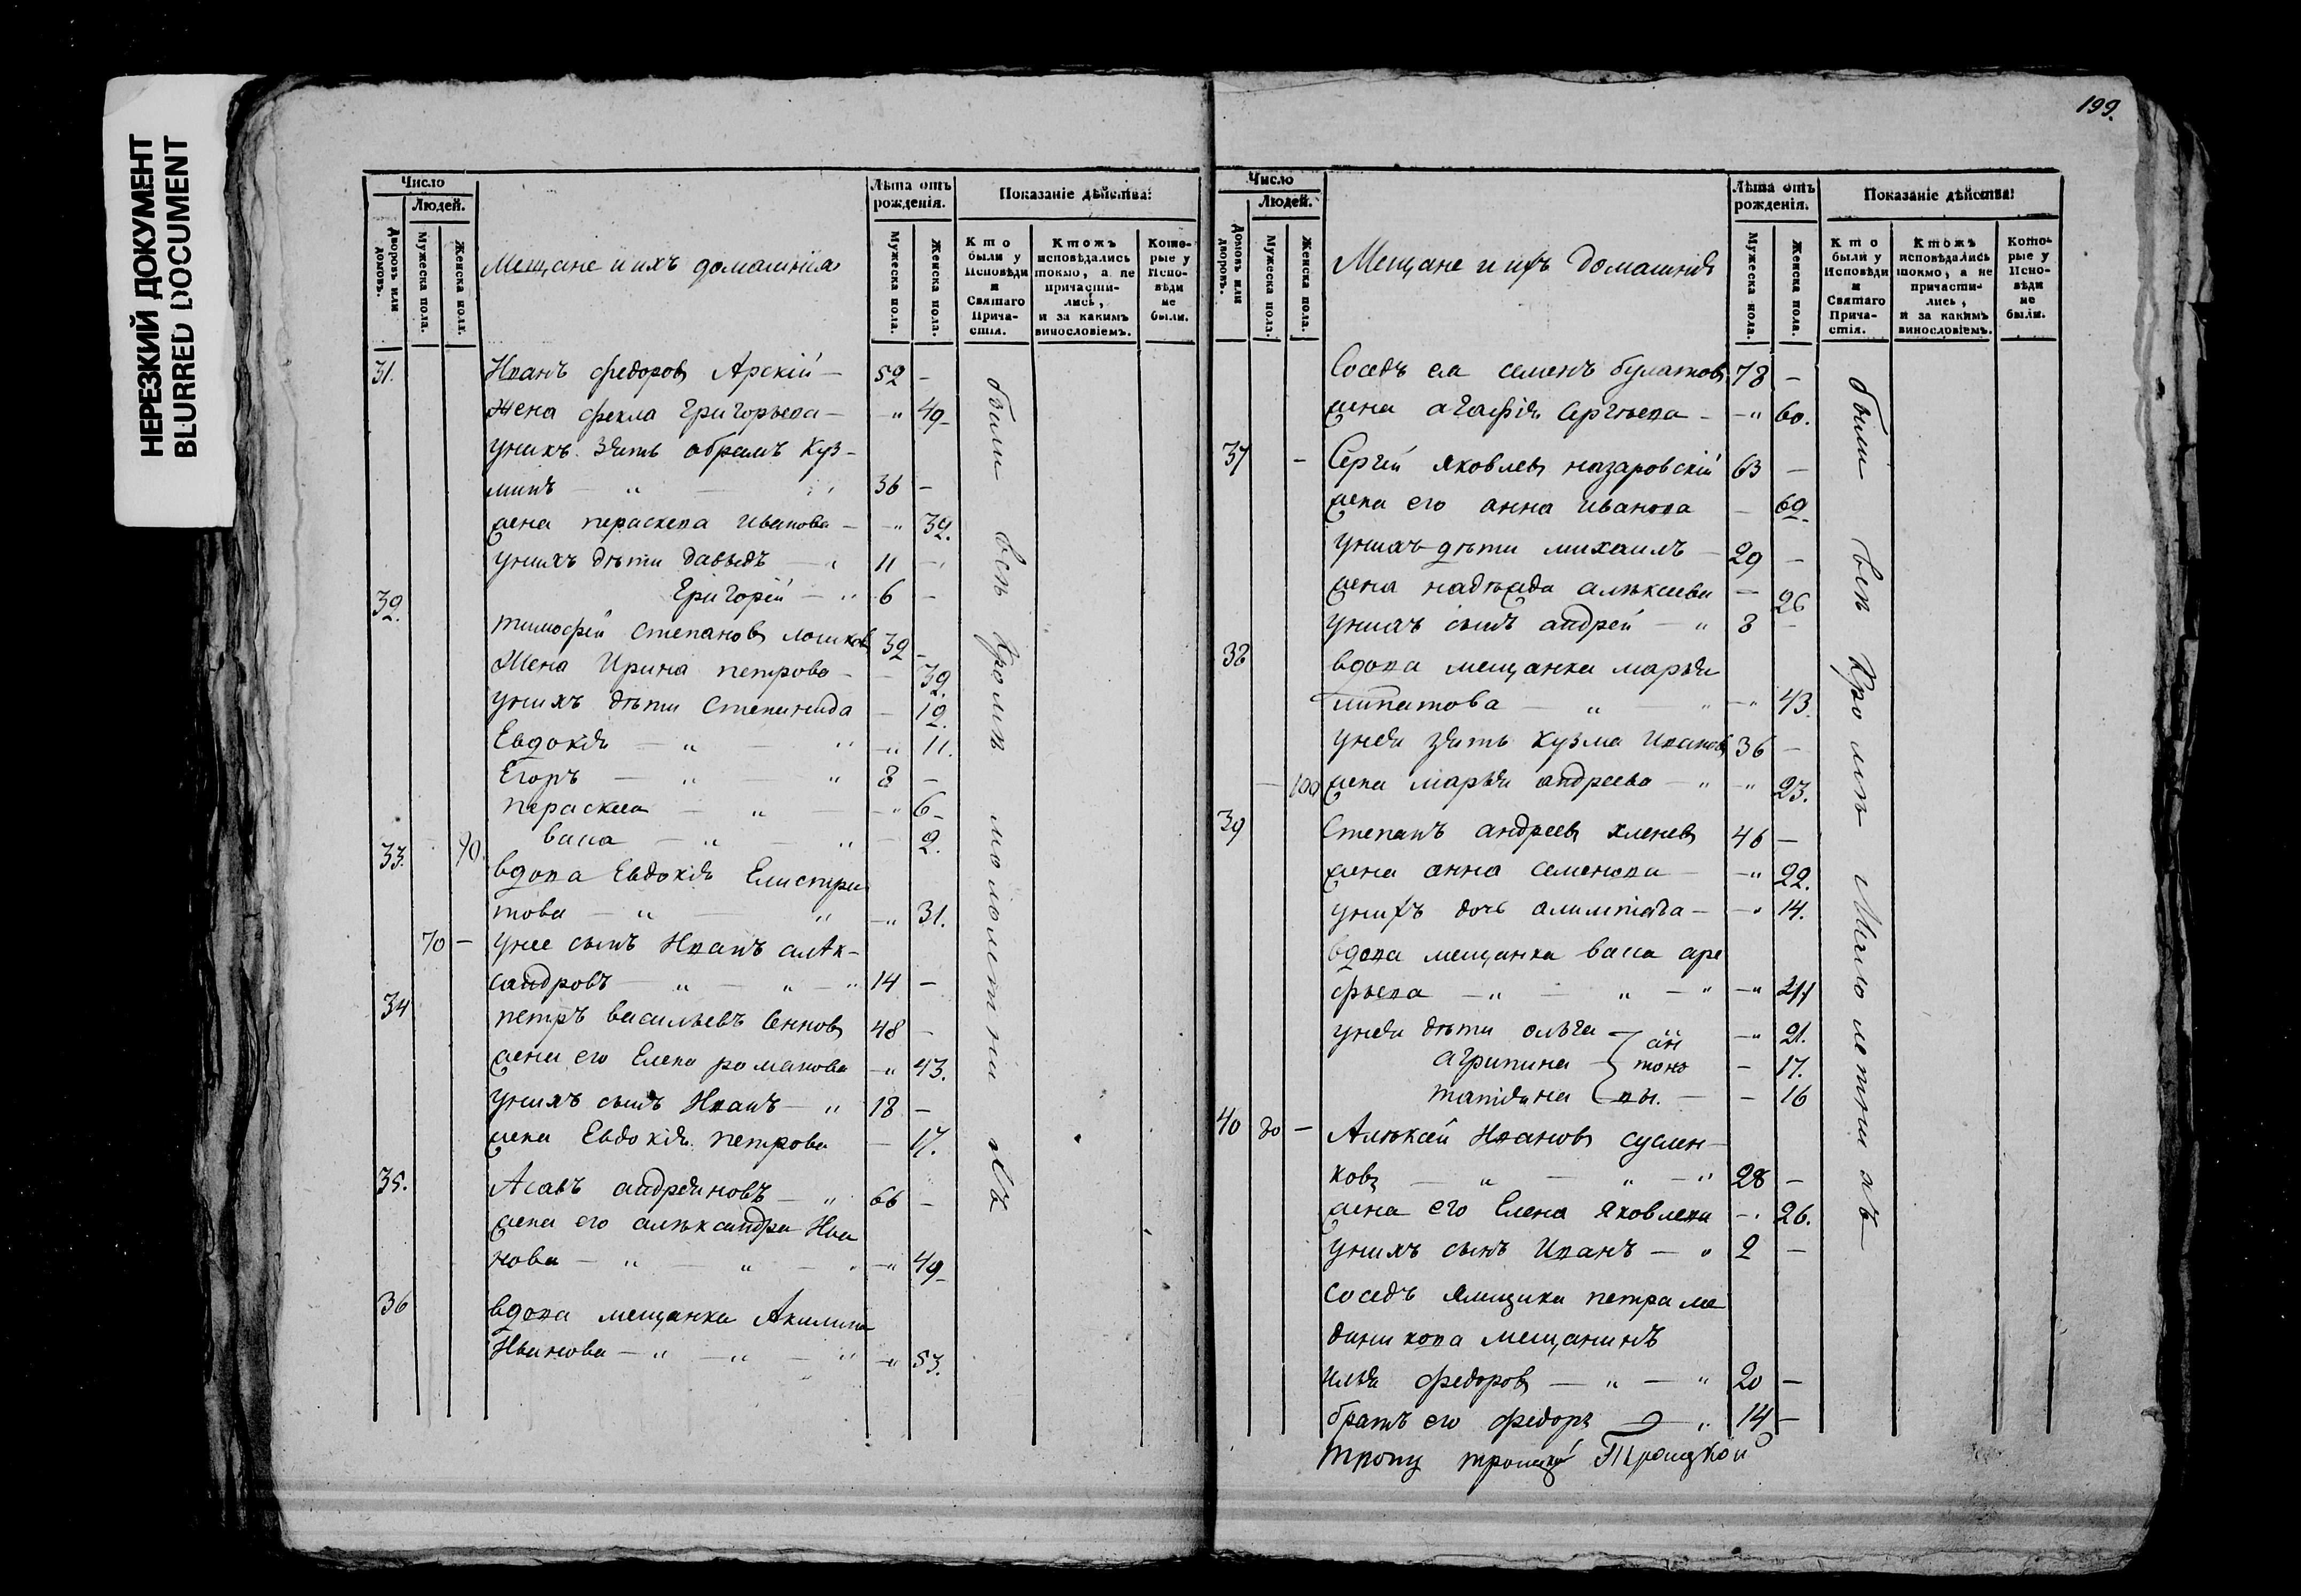 НЕРЕЗКИЙ ДОКУМЕНТ
BLURRED DOCUMENT
Число
Людей.
Дворовъ или домовъ.
Мужеска пола.
Женска пола.
Мещане и ихъ домашнія
Лѣта отъ рожденія.
Мужеска пола.
Женска пола.
Показаніе дѣйства:
Кто были у Исповѣди и Святаго Причастія.
Ктожъ исповѣдались токмо, а не причастились, и за какимъ винословіемъ.
Которые у Исповѣди не были.
31. Иванъ федоровъ Арскій — 52 —
Жена фекла Григорьева — —„ 49
униxъ зять абрамъ Куз-
минъ — „ — „ 36 —
жена параскева Иванова — —„ 32.
унихъ дѣти давыдъ — „ 11 —
Григорій — „ 6 —
32. тимофей степановъ 32 —
Жена Ирина петрова — — 32.
унихъ дѣти Степанида — 12.
Евдокія — „ — „ —„ 11.
Егоръ — „ — „ 8 —
параскева — „ — —„ 6
васа — „ — „ — 2.
33. 90. вдова Евдокія Елистра
това — „ — „ —„ 31.
70 — унее сынъ Иванъ алек-
сандровъ — „ — „ — „ 14 —
34 петръ васильевъ 48 —
жена его Елена романова —„ 43.
унихъ сынъ Иванъ — „ 18 —
жена Евдокія петрова — 17.
35. андреяновъ — „ 66 —
жена его александра Ива
нова — „ — „ — „ —„ 49
36 вдова мещанка Акилина
Иванова — „ — „ — „ —„ 53.
были всѣ Кромѣ мололѣтнихъ
199.
Число
Людей.
Домовъ или дворовъ.
Мужеска пола.
Женска пола.
Мещане и ихъ домашнія
Лѣта отъ рожденія.
Мужеска пола.
Женска пола.
Показаніе дѣйства:
Кто были у Исповѣди и Святаго Причастія.
Ктожъ исповѣдались токмо, а не причастились, и за какимъ винословіемъ.
Которые у Исповѣди не были.
Соседъ ея семенъ булатовъ 78 —
жена агафія Сергѣева — —„ 60.
37 — Сергѣй яковлевъ назаровскій 63 —
жена его анна иванова — 62.
унихъ дѣти михаилъ — 29 —
жена надежда алексеева — 26
унихъ сынъ андрей — „ 3 —
38 вдова мещанка марья
липатова — „ „ —„ 43.
унея зять кузма Ивановъ 36 —
— 100 жена марья андреева — „ —„ 23.
39 Степанъ андреевъ хленевъ 46 —
жена анна семенова — —„ 22.
унихъ дочь олимпіада — —„ 14.
вдова мещанка васа аре
фьева — „ — „ — „ —„ 44
унея дѣти ольга — ан —„ 21.
агрипина — тоно — 17.
татіяна вы. — — 16
40 80 — Алексей Ивановъ суслен-
ковъ — „ — „ — „ 28 —
жена его Елена Яковлева —„ 26.
унихъ сынъ Иванъ — „ 2 —
соседъ ямщика петра ме
дникова мещанинъ
илья федоровъ — „ — „ 20 —
братъ его федоръ — „ 14 —
были всѣ Кромѣ Мало летнихъ
Троицкой